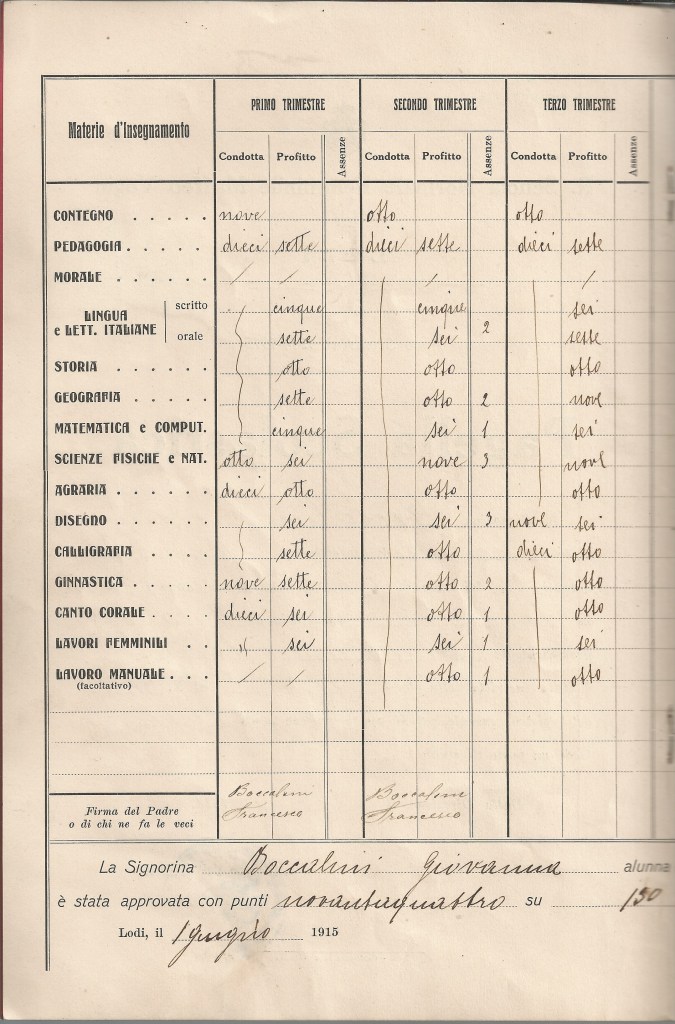 PRIMO TRIMESTRE SECONDO TRIMESTRE TERZO TRIMESTRE
Materie d'Insegnamento
Condotta Profitto Assenze Condotta Profitto Assenze Condotta Profitto Assenze
CONTEGNO . . . . . nove otto otto
PEDAGOGIA . . . . . dieci sette dieci sette dieci sette
MORALE . . . . . . / / / /
LINGUA e LETT. ITALIANE scritto cinque cinque sei
orale sette sei 2 sette
STORIA . . . . . . otto otto otto
GEOGRAFIA . . . . . sette otto 2 nove
MATEMATICA e COMPUT. cinque sei 1 sei
SCIENZE FISICHE e NAT. otto sei nove 3 nove
AGRARIA . . . . . . dieci otto otto otto
DISEGNO . . . . . . sei sei 3 nove sei
CALLIGRAFIA . . . . sette otto dieci otto
GINNASTICA . . . . . nove sette otto 2 otto
CANTO CORALE . . . . dieci sei otto 1 otto
LAVORI FEMMINILI . . " sei sei 1 sei
LAVORO MANUALE . . . / / otto 1 otto
(facoltativo)
Firma del Padre Boccalini Boccalini
o di chi ne fa le veci Francesco Francesco
La Signorina Boccalini Giovanna alunna
è stata approvata con punti novantaquattro su 130
Lodi, il 1 giugno 1915